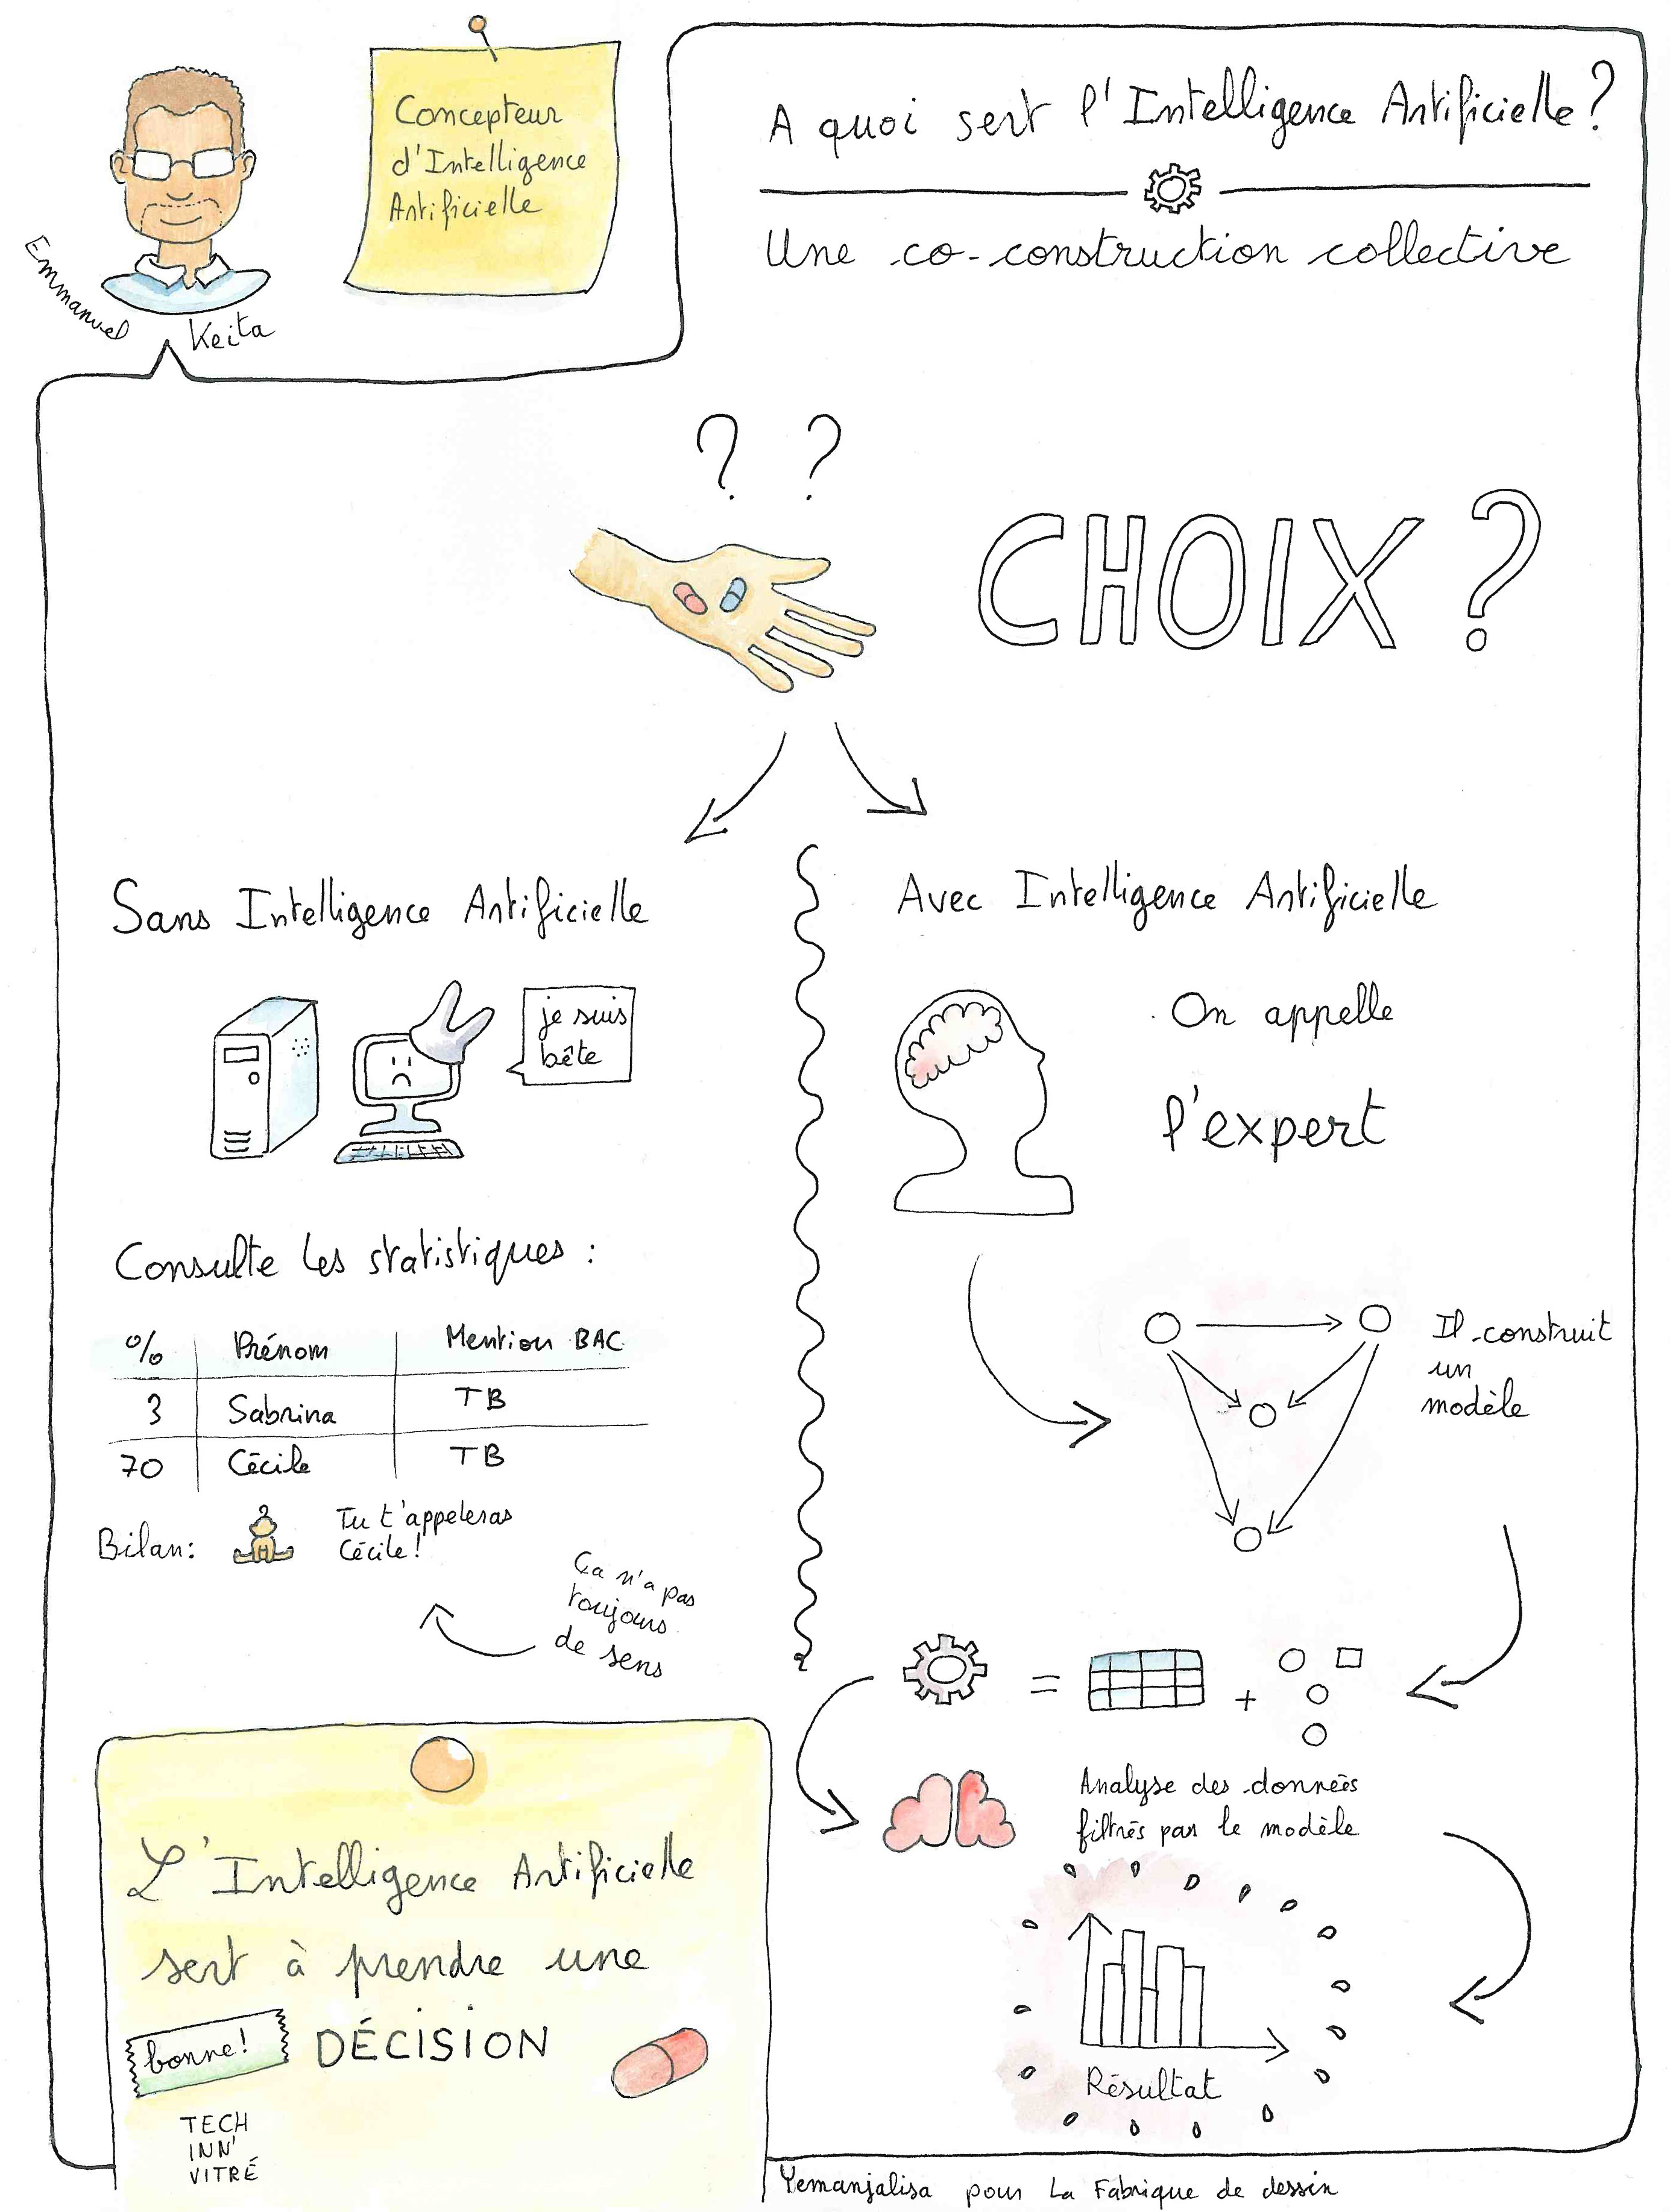 Emmanuel Keita
Concepteur
d'Intelligence
Artificielle
A quoi sert l'Intelligence Artificielle ?
Une co-construction collective
? ?
CHOIX ?
Sans Intelligence Artificielle
je suis
bête
Consulte les statistiques :
% Prénom Mention BAC
3 Sabrina TB
70 Cécile TB
Bilan:
Tu t'appeleras
Cécile !
Ça n'a pas
toujours
de sens
Avec Intelligence Artificielle
On appelle
l'expert
Il construit
un
modèle
= +
Analyse des données
filtrés par le modèle
Résultat
L'Intelligence Artificielle
sert à prendre une
bonne! DÉCISION
TECH
INN'
VITRÉ
Yemanjalisa pour La Fabrique de dessin